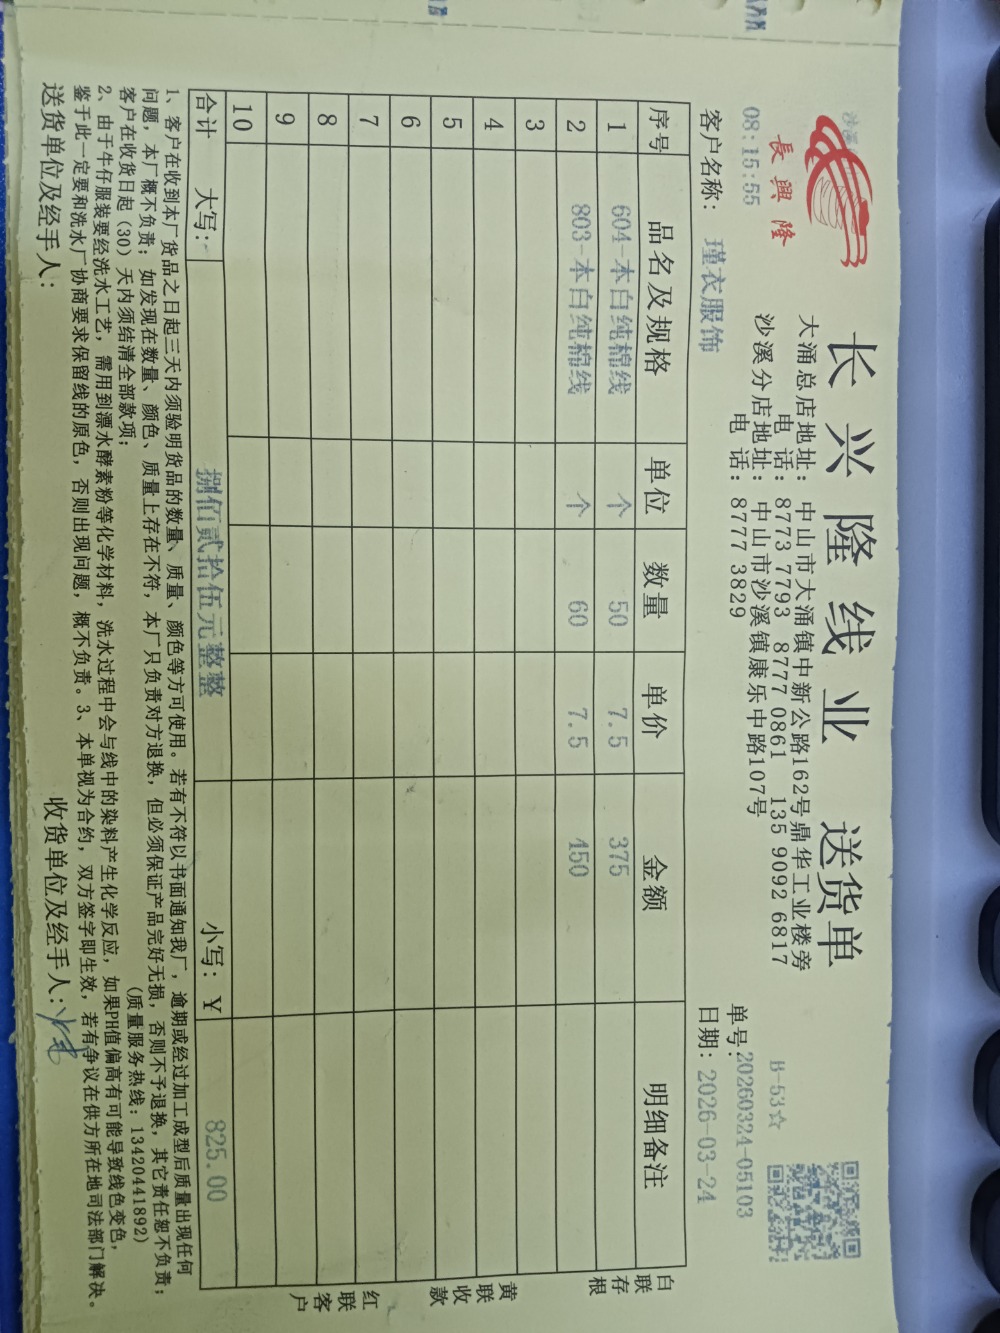 長興隆
长兴隆线业 送货单
大涌总店地址：中山市大涌镇中新公路162号鼎华工业楼旁
电 话：8773 7793 8777 0861 135 9092 6817
沙溪分店地址：中山市沙溪镇康乐中路107号
电 话：8777 3829
08:15:55
B-53☆
单号：20260324-05103
客户名称： 瑾衣服饰 日期：2026-03-24
序号 品名及规格 单位 数量 单价 金额 明细备注
1 604-本白纯棉线 个 50 7.5 375
2 803-本白纯棉线 个 60 7.5 450
3
4
5
6
7
8
9
10
合计 大写： 捌佰贰拾伍元整整 小写：￥ 825.00
白联存根
黄联收款
红联客户
1、客户在收到本厂货品之日起三天内须验明货品的数量、质量、颜色等方可使用。若有不符以书面通知我厂，逾期或经过加工成型后质量出现任何
问题，本厂概不负责；如发现在数量、颜色、质量上存在不符，本厂只负责对方退换，但必须保证产品完好无损，否则不予退换，其它责任恕不负责；
客户在收货日起（30）天内须结清全部款项； （质量服务热线：13420441892）
2、由于牛仔服装要经洗水工艺，需用到漂水酵素粉等化学材料，洗水过程中会与线中的染料产生化学反应，如果PH值偏高有可能导致线色变色，
鉴于此一定要和洗水厂协商要求保留线的原色，否则出现问题，概不负责。3、本单视为合约，双方签字即生效，若有争议在供方所在地司法部门解决。
送货单位及经手人： 收货单位及经手人：